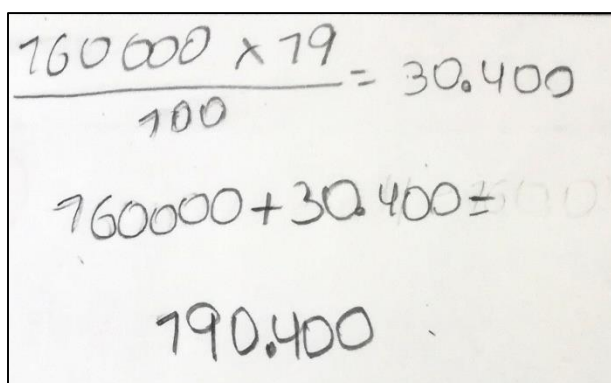 160000 x 19
100
= 30.400
160000 + 30.400 =
190.400